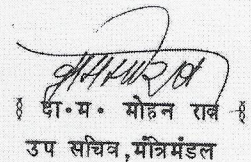 ﴾ दा॰म॰ मोहन राव ﴿
उप सचिव,मंत्रिमंडल